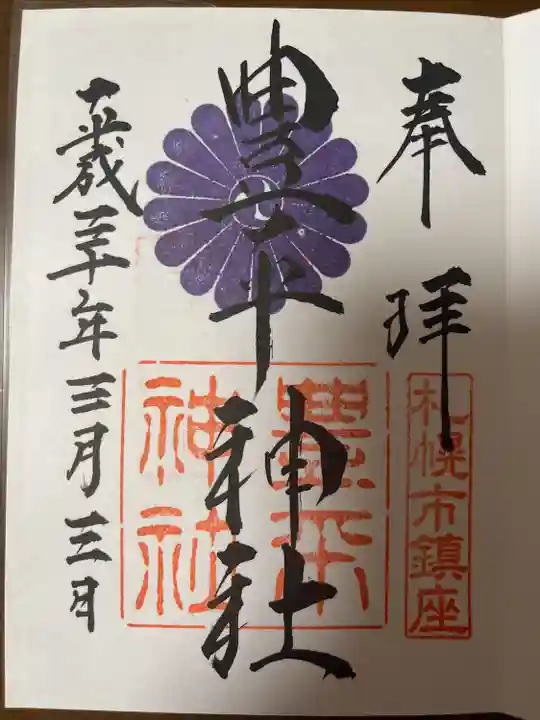 奉拝
札幌市鎮座
豊平神社
豊平
神社
平成三十年三月三日